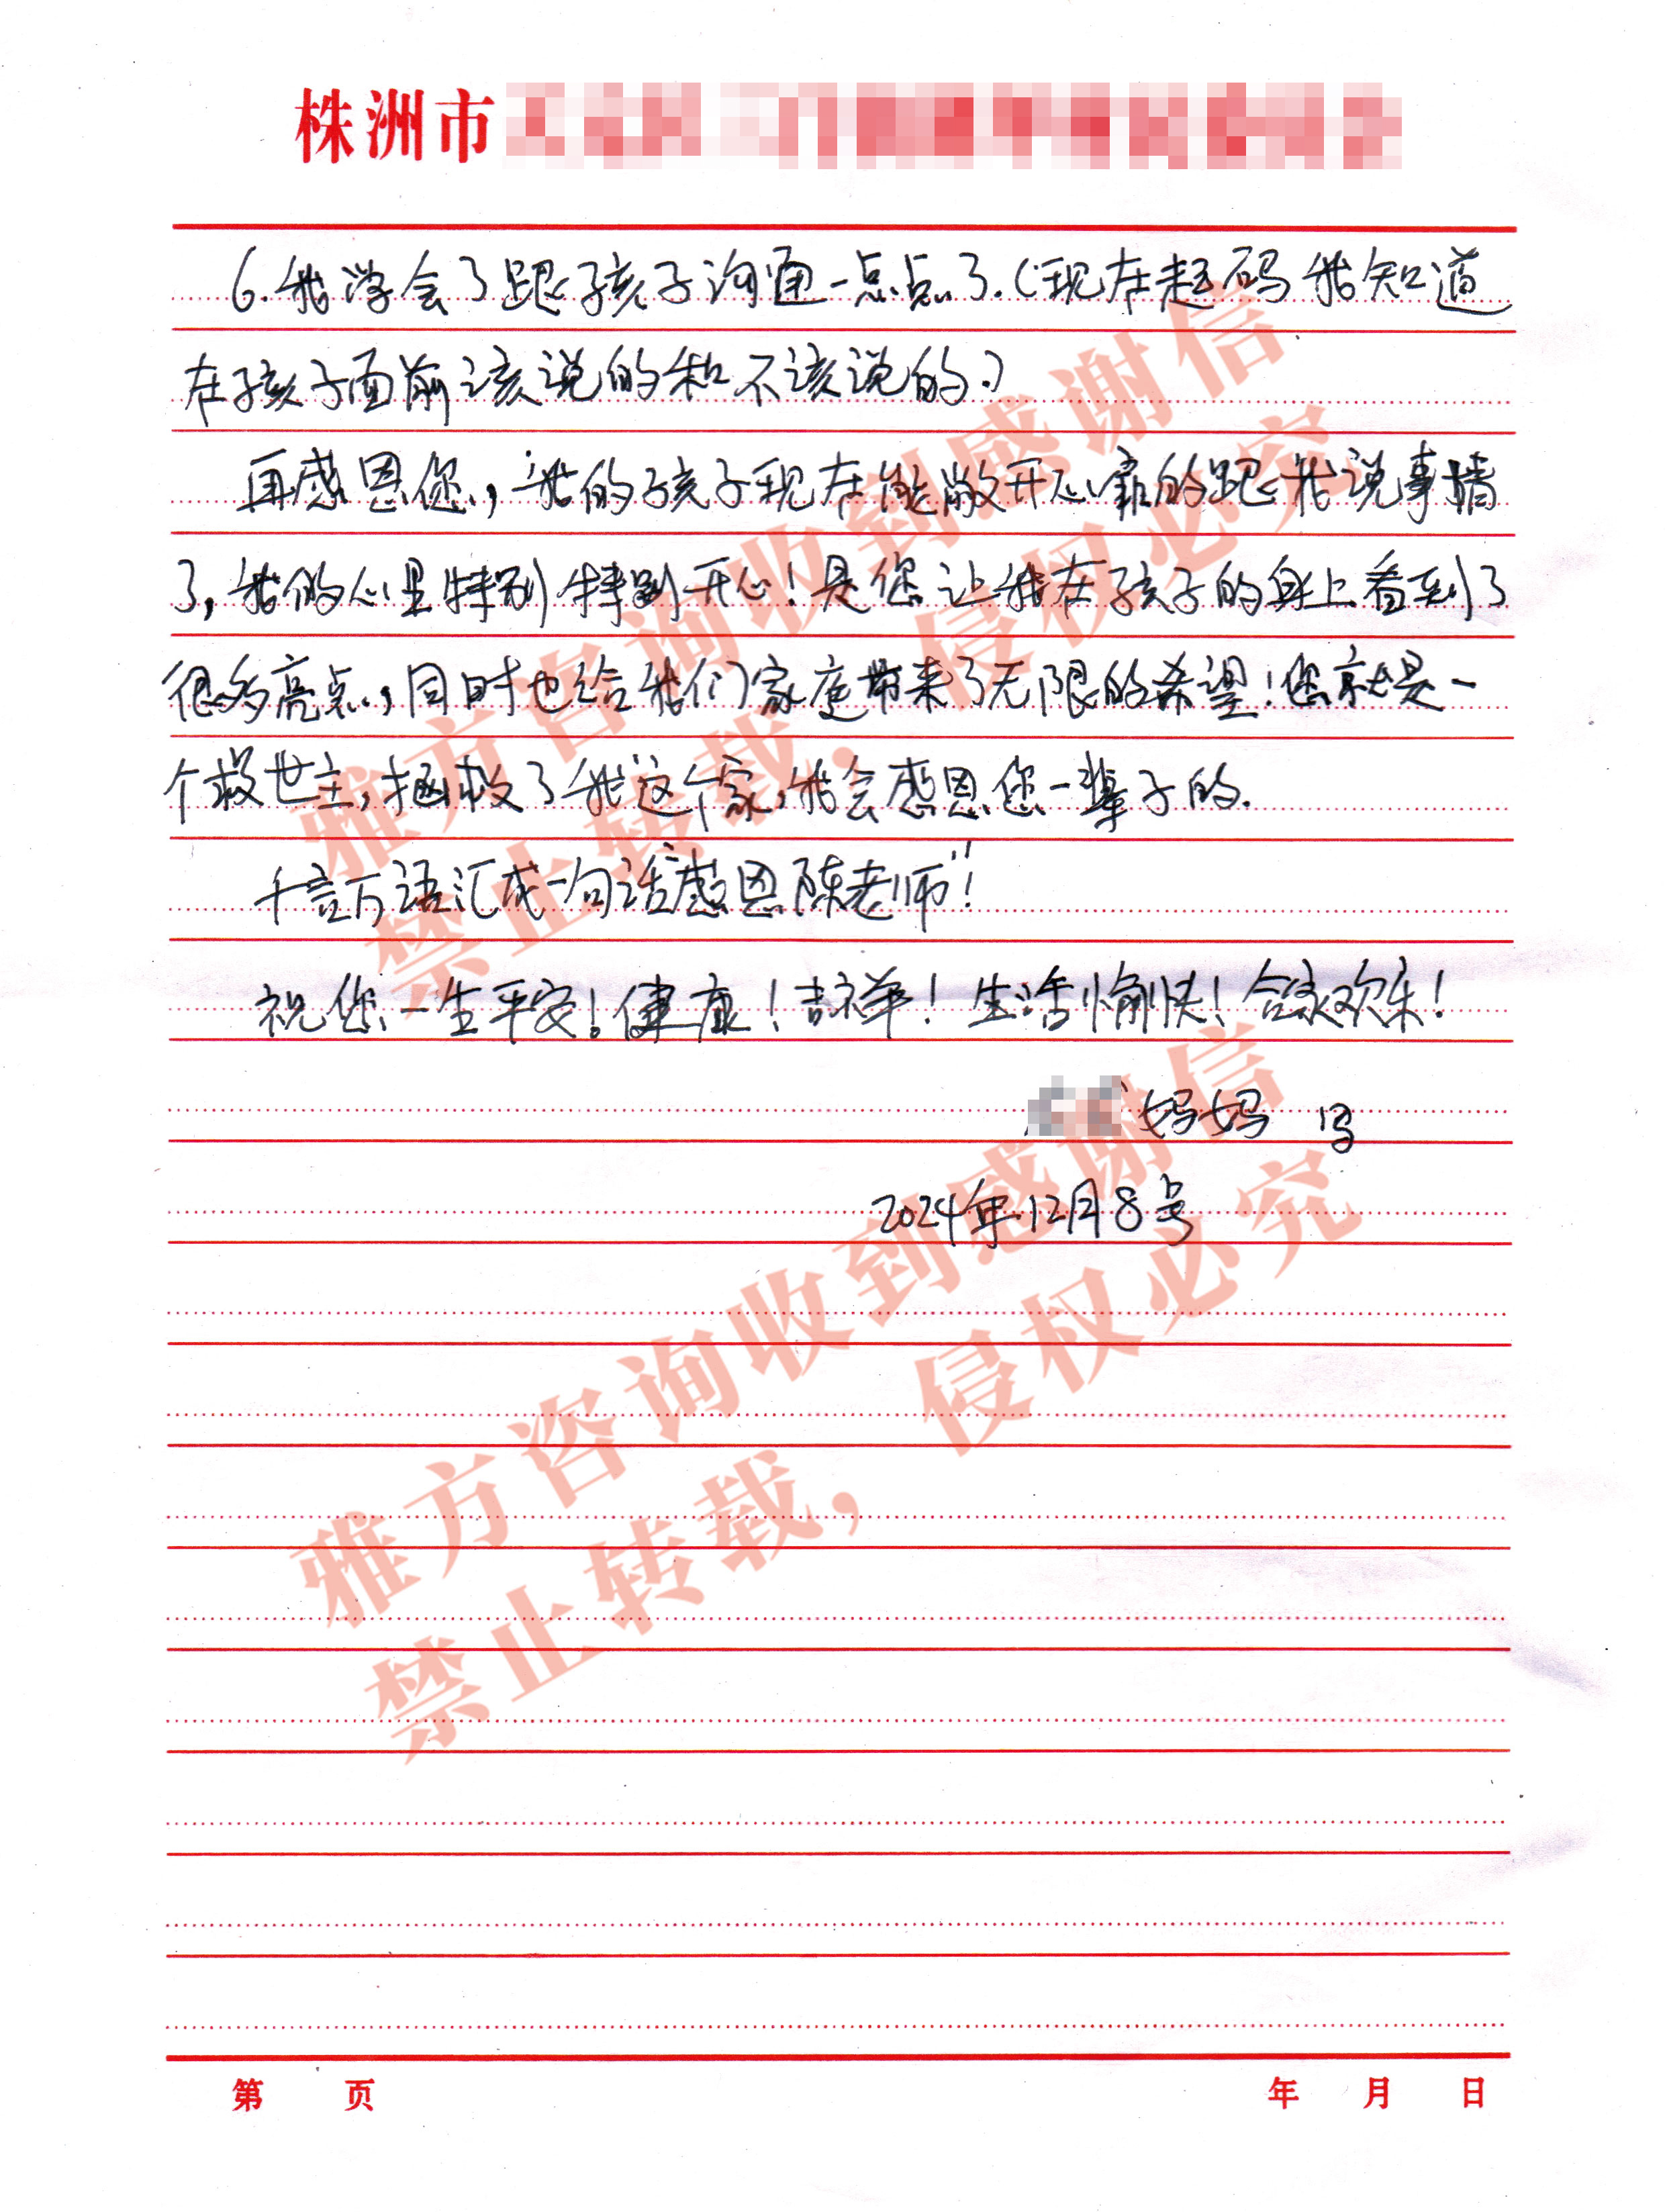 株洲市
6.我学会了跟孩子沟通一点点了.(现在起码我知道
在孩子面前该说的和不该说的.)
再感恩您,我的孩子现在能敞开心扉的跟我说事情
了,我的心里特别特别开心!是您让我在孩子的身上看到了
很多亮点,同时也给我们家庭带来了无限的希望!您就是一
个救世主,拯救了我这个家,我会感恩您一辈子的.
千言万语汇成一句话"感恩陈老师"!
祝您一生平安!健康!吉祥!生活愉快!合家欢乐!
妈妈
2024年12月8号
雅方咨询收到感谢信
禁止转载,侵权必究
雅方咨询收到感谢信
禁止转载,侵权必究
第 页 年 月 日